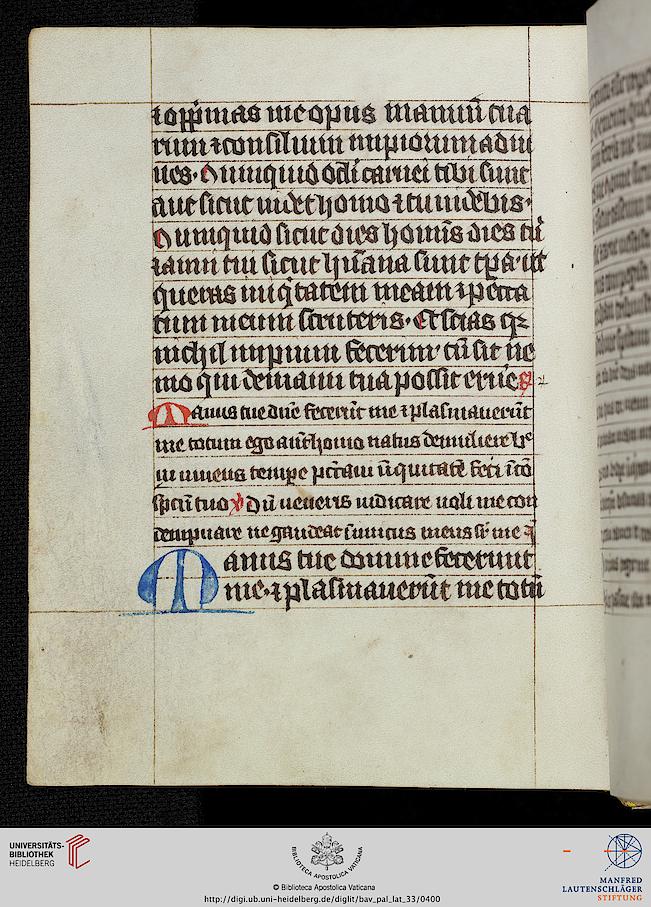 ⁊ opp̃mas me opus manuũ tua
rum ⁊ consilium impiorum adiu
ues. Numquid oc̃li carnei tibi sunt
aut sicut uidet homo ⁊ tu uidebis.
Numquid sicut dies homĩs dies tũ
⁊ anni tui sicut hũana sunt tp̃a. ut
queras iniq̃tatem meam ⁊ pecca
tum meum scruteris. Et scias qꝫ
nichil impium fecerim cũ sit ne
mo qui de manu tua possit erue
Manus tue dñe fecerũt me ⁊ plasmauerũt
me totum ego aũt homo natus de muliere
in
sp̃cũ tuo ℣ Dũ ueneris iudicare noli me con
dempnare ne gaudeat inimicus meus
Manus tue domine fecerunt
me. ⁊ plasmauerũt me totũ
UNIVERSITÄTS-
BIBLIOTHEK
HEIDELBERG
BIBLIOTECA APOSTOLICA VATICANA
© Biblioteca Apostolica Vaticana
http://digi.ub.uni-heidelberg.de/diglit/bav_pal_lat_33/0400
MANFRED
LAUTENSCHLÄGER
STIFTUNG